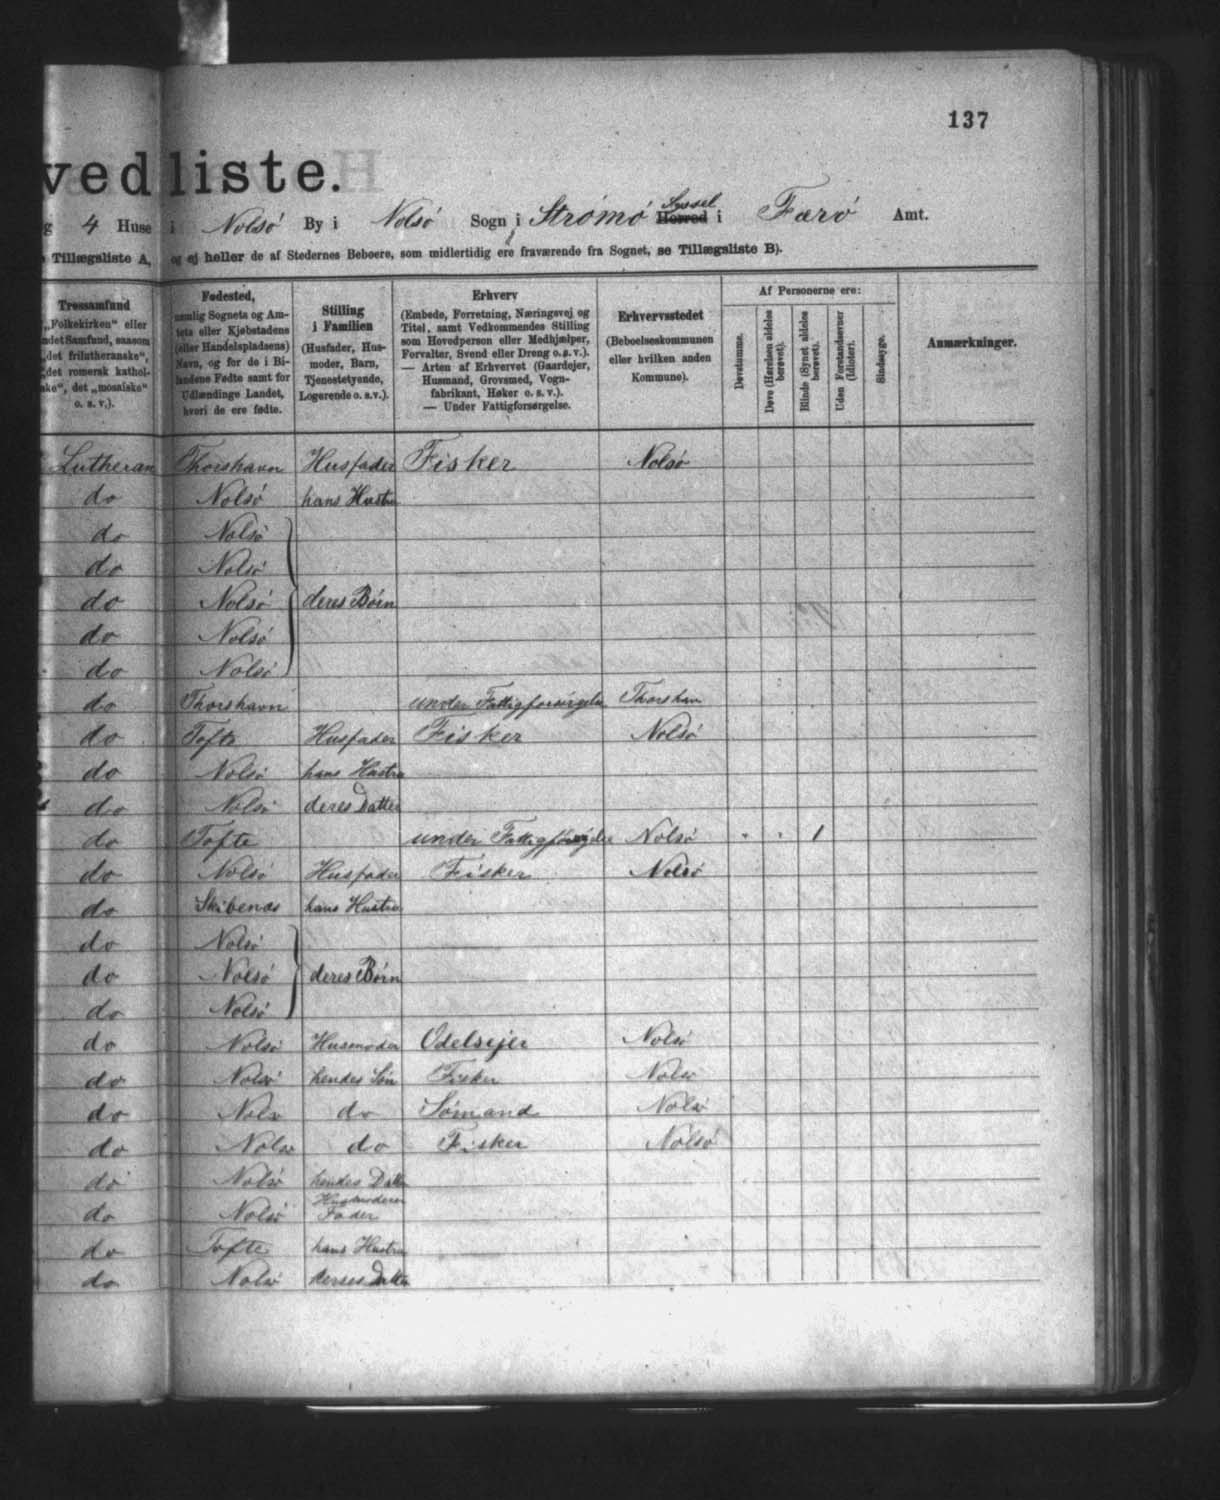 137
vedliste.
g 4 Huse i Nolsø By i Nolsø Sogn i Strømø Herred Syssel i Færø Amt.
Tillægsliste A, og ej heller de af Stedernes Beboere, som midlertidig ere fraværende fra Sognet, se Tillægsliste B).
Trossamfund
„Folkekirken“ eller
ndet Samfund, saasom
„det frilutheranske“,
„det romersk kathol-
ske“, det „mosaiske“
o. s. v.).
Fødested,
nemlig Sognets og Am-
tets eller Kjøbstadens
(eller Handelspladsens)
Navn, og for de i Bi-
landene Fødte samt for
Udlændinge Landet,
hvori de ere fødte.
Stilling
i Familien
(Husfader, Hus-
moder, Barn,
Tjenestetyende,
Logerende o. s. v.).
Erhverv
(Embede, Forretning, Næringsvej og
Titel, samt Vedkommendes Stilling
som Hovedperson eller Medhjælper,
Forvalter, Svend eller Dreng o. s. v.).
— Arten af Erhvervet (Gaardejer,
Husmand, Grovsmed, Vogn-
fabrikant, Høker o. s. v.).
— Under Fattigforsørgelse.
Erhvervsstedet
(Beboelseskommunen
eller hvilken anden
Kommune).
Af Personerne ere:
Døvstumme.
Døve (Hørelsen aldeles
berøvet).
Blinde (Synet aldeles
berøvet).
Uden Forstandsevner
(Idioter).
Sindssyge.
Anmærkninger.
Lutheran Thorshavn Husfader Fisker Nolsø
do Nolsø hans Hustru
do Nolsø
do Nolsø
do Nolsø deres Børn
do Nolsø
do Nolsø
do Thorshavn under Fattigforsørgelse Thorshavn
do Tofte Husfader Fisker Nolsø
do Nolsø hans Hustru
do Nolsø deres Datter
do Tofte under Fattigforsørgelse Nolsø " " 1
do Nolsø Husfader Fisker Nolsø
do Skibenæs hans Hustru
do Nolsø
do Nolsø deres Børn
do Nolsø
do Nolsø Husmoder Odelsejer Nolsø
do Nolsø hendes Søn Fisker Nolsø
do Nolsø do Sømand Nolsø
do Nolsø do Fisker Nolsø
do Nolsø hendes Datter
do Nolsø Husmoderens Fader
do Tofte hans Hustru
do Nolsø derses Datter